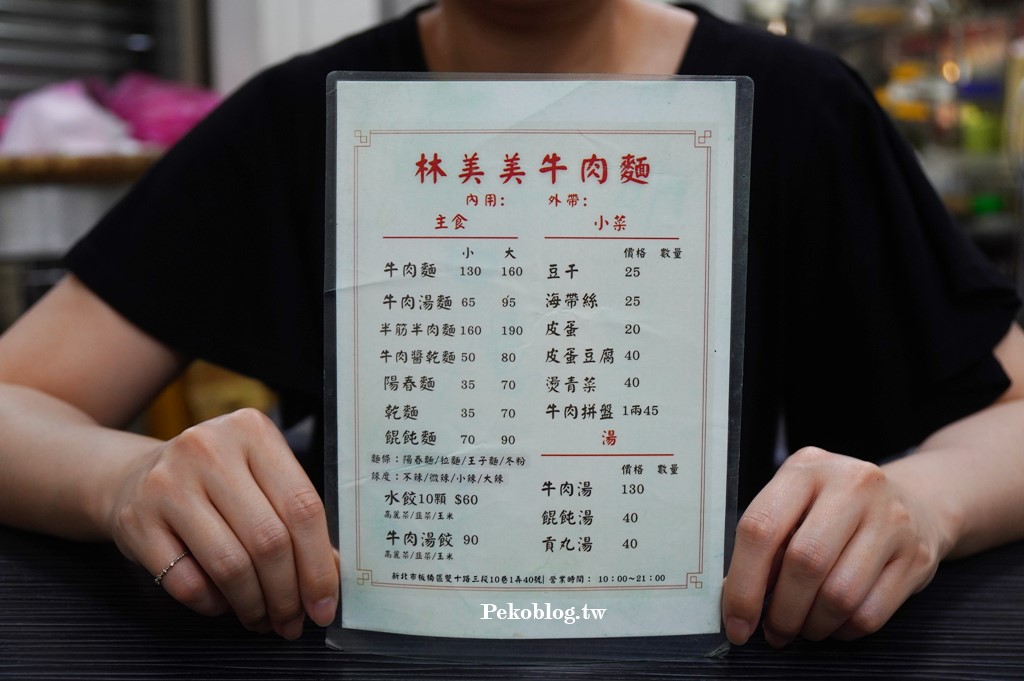 林美美牛肉麵
內用： 外帶：
主食
小 大
牛肉麵 130 160
牛肉湯麵 65 95
半筋半肉麵 160 190
牛肉醬乾麵 50 80
陽春麵 35 70
乾麵 35 70
餛飩麵 70 90
麵條：陽春麵/拉麵/王子麵/冬粉
辣度：不辣/微辣/小辣/大辣
水餃10顆 $60
高麗菜/韭菜/玉米
牛肉湯餃 90
高麗菜/韭菜/玉米
小菜
價格 數量
豆干 25
海帶絲 25
皮蛋 20
皮蛋豆腐 40
燙青菜 40
牛肉拼盤 1兩45
湯
價格 數量
牛肉湯 130
餛飩湯 40
貢丸湯 40
新北市板橋區雙十路三段10巷1弄40號| 營業時間： 10：00~21：00
Pekoblog.tw